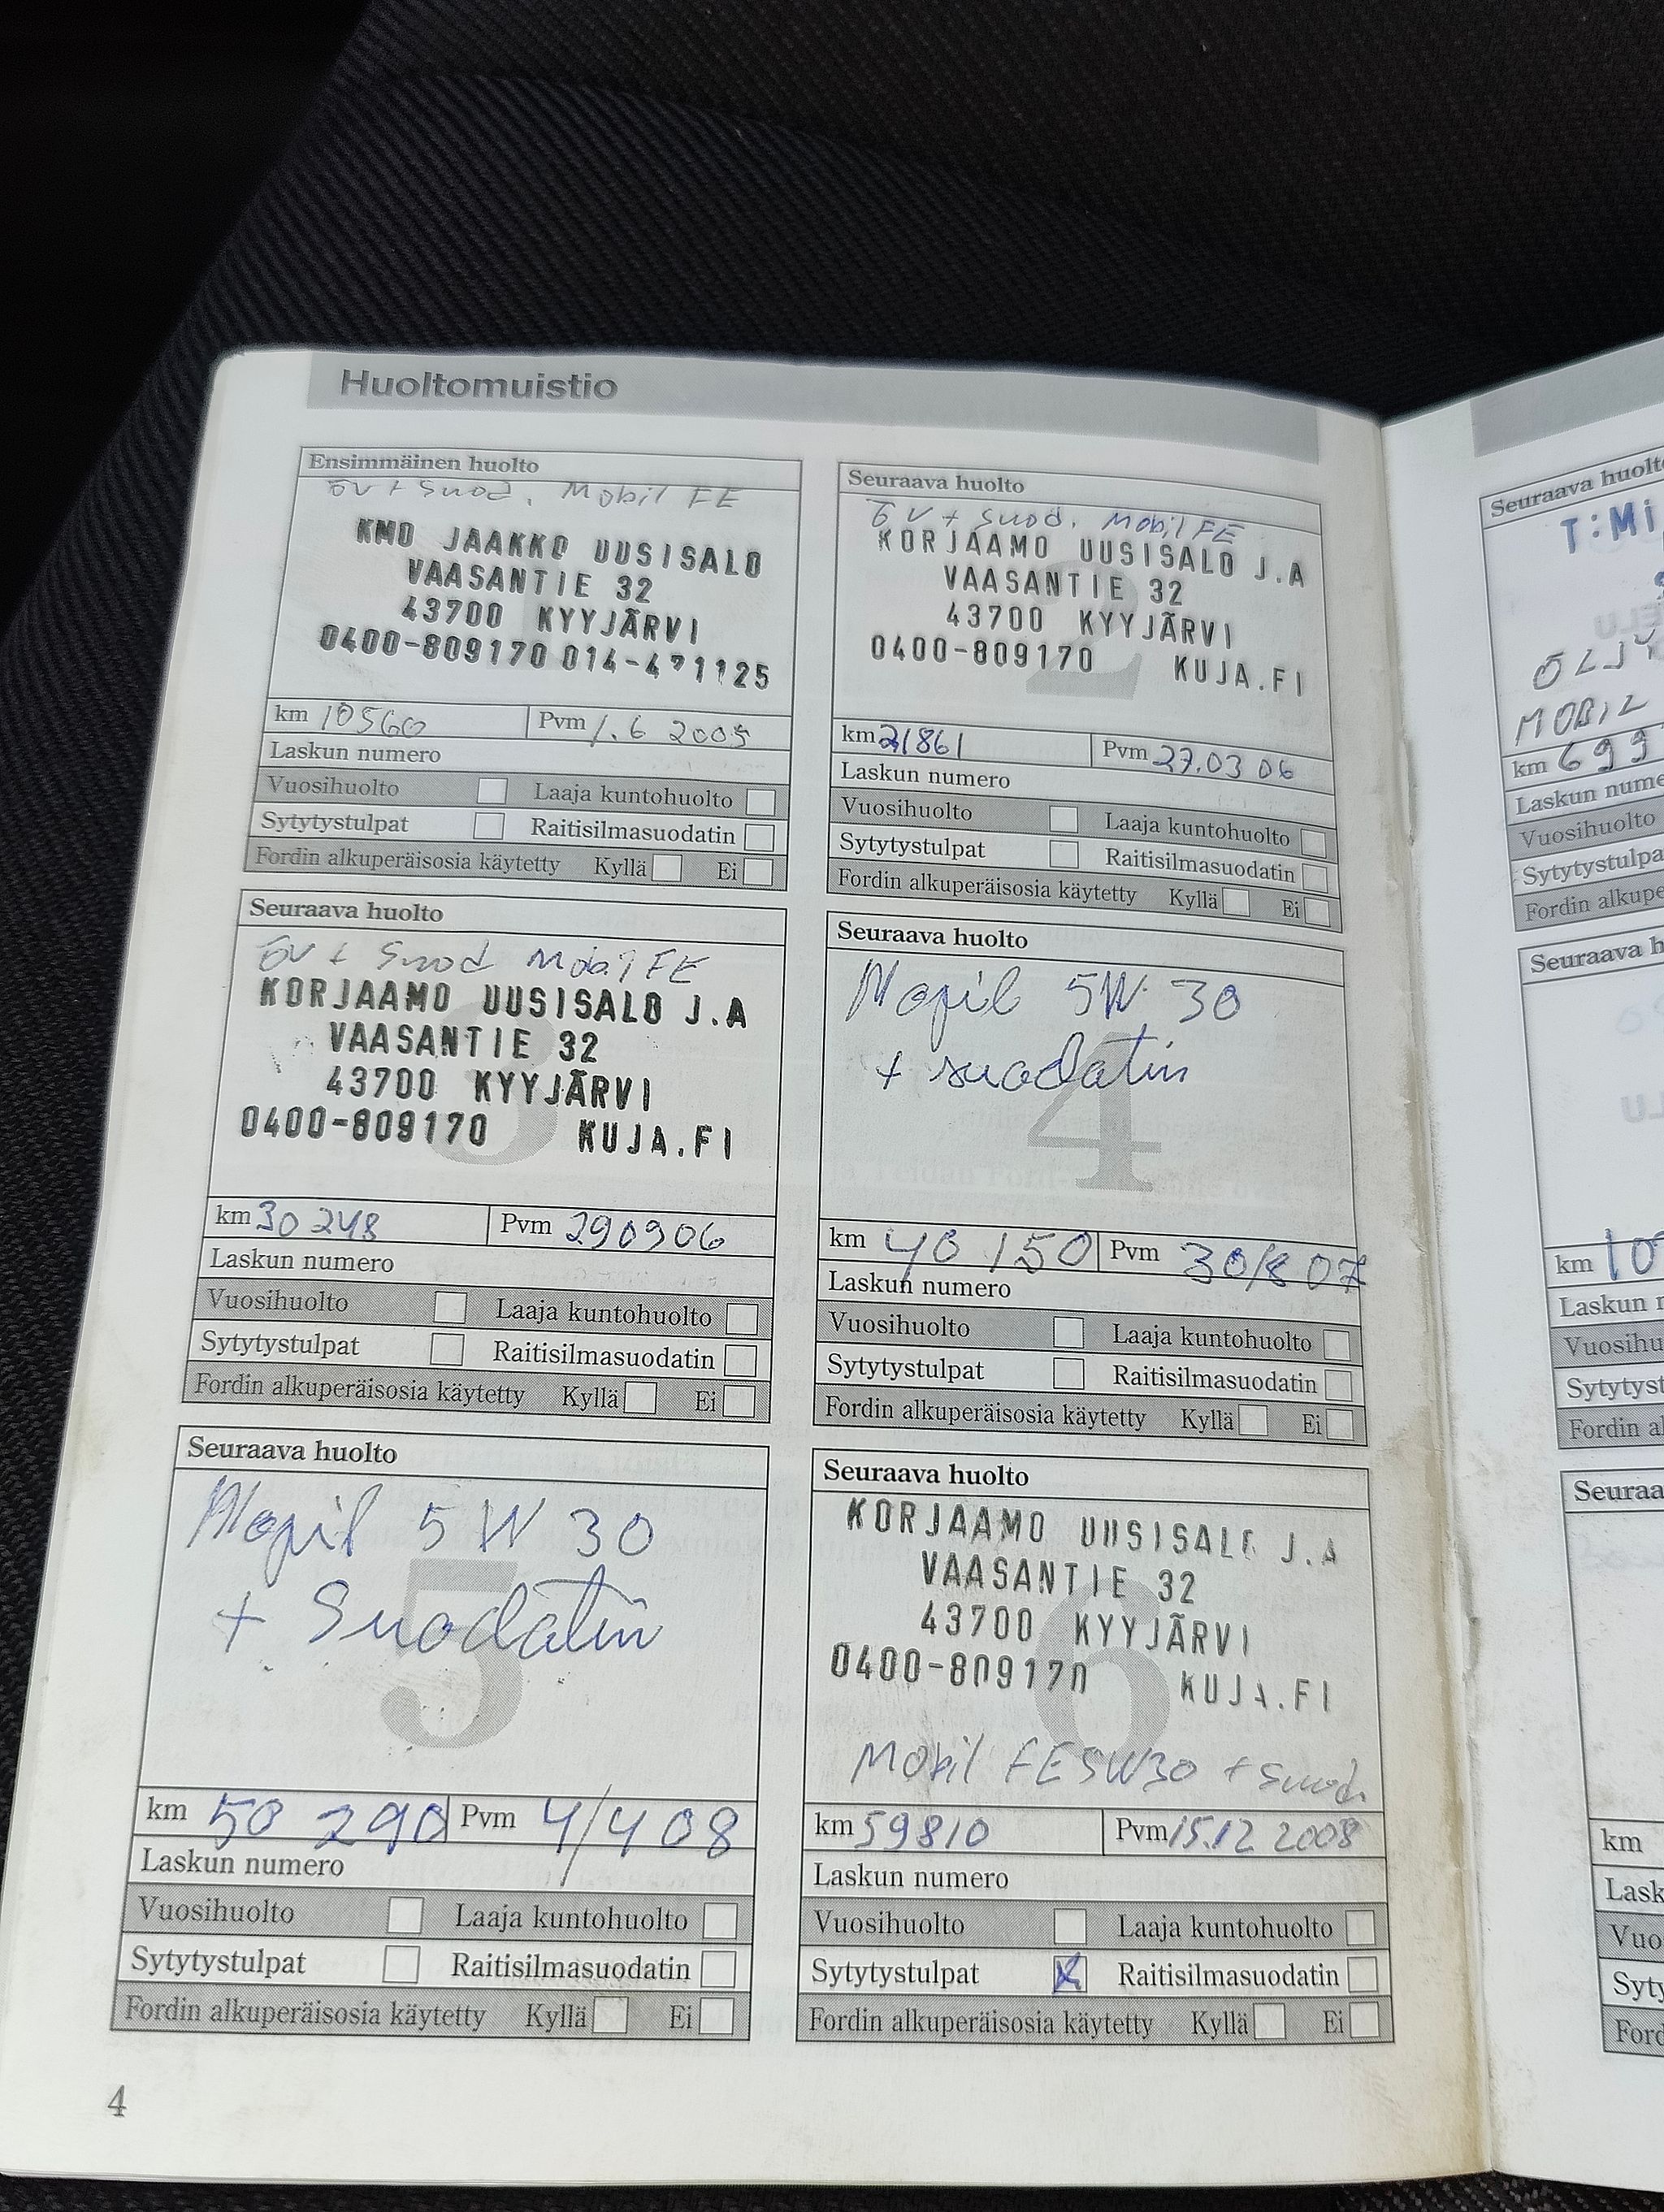 Huoltomuistio
Ensimmäinen huolto
ÖV + Suod. Mobil FE
KMO JAAKKO UUSISALO
VAASANTIE 32
43700 KYYJÄRVI
0400-809170 014-471125
km 10560 Pvm 1.6 2005
Laskun numero
Vuosihuolto Laaja kuntohuolto
Sytytystulpat Raitisilmasuodatin
Fordin alkuperäisosia käytetty Kyllä Ei
Seuraava huolto
ÖV + Suod. Mobil FE
KORJAAMO UUSISALO J.A
VAASANTIE 32
43700 KYYJÄRVI
0400-809170 KUJA.FI
km 21861 Pvm 27.03 06
Laskun numero
Vuosihuolto Laaja kuntohuolto
Sytytystulpat Raitisilmasuodatin
Fordin alkuperäisosia käytetty Kyllä Ei
Seuraava huolto
ÖV + Suod Mobil FE
KORJAAMO UUSISALO J.A
VAASANTIE 32
43700 KYYJÄRVI
0400-809170 KUJA.FI
km 30 248 Pvm 290906
Laskun numero
Vuosihuolto Laaja kuntohuolto
Sytytystulpat Raitisilmasuodatin
Fordin alkuperäisosia käytetty Kyllä Ei
Seuraava huolto
Mopil 5W 30
+ suodatin
4
km 40 150 Pvm 30/8 07
Laskun numero
Vuosihuolto Laaja kuntohuolto
Sytytystulpat Raitisilmasuodatin
Fordin alkuperäisosia käytetty Kyllä Ei
Seuraava huolto
Mopil 5W 30
+ Suodatin
5
km 50 290 Pvm 4/4 08
Laskun numero
Vuosihuolto Laaja kuntohuolto
Sytytystulpat Raitisilmasuodatin
Fordin alkuperäisosia käytetty Kyllä Ei
Seuraava huolto
KORJAAMO UUSISALO J.A
VAASANTIE 32
43700 KYYJÄRVI
0400-809170 KUJA.FI
6
Mobil FE5W30 + suod.
km 59810 Pvm 15.12 2008
Laskun numero
Vuosihuolto Laaja kuntohuolto
Sytytystulpat X Raitisilmasuodatin
Fordin alkuperäisosia käytetty Kyllä Ei
4
Seuraava huolt
T:Mi
ÖLJY
MOBIL
km 699
Laskun nume
Vuosihuolto
Sytytystulpa
Fordin alkupe
Seuraava h
km 10
Laskun n
Vuosihu
Sytytyst
Fordin al
Seuraa
km
Lask
Vuo
Syty
Ford